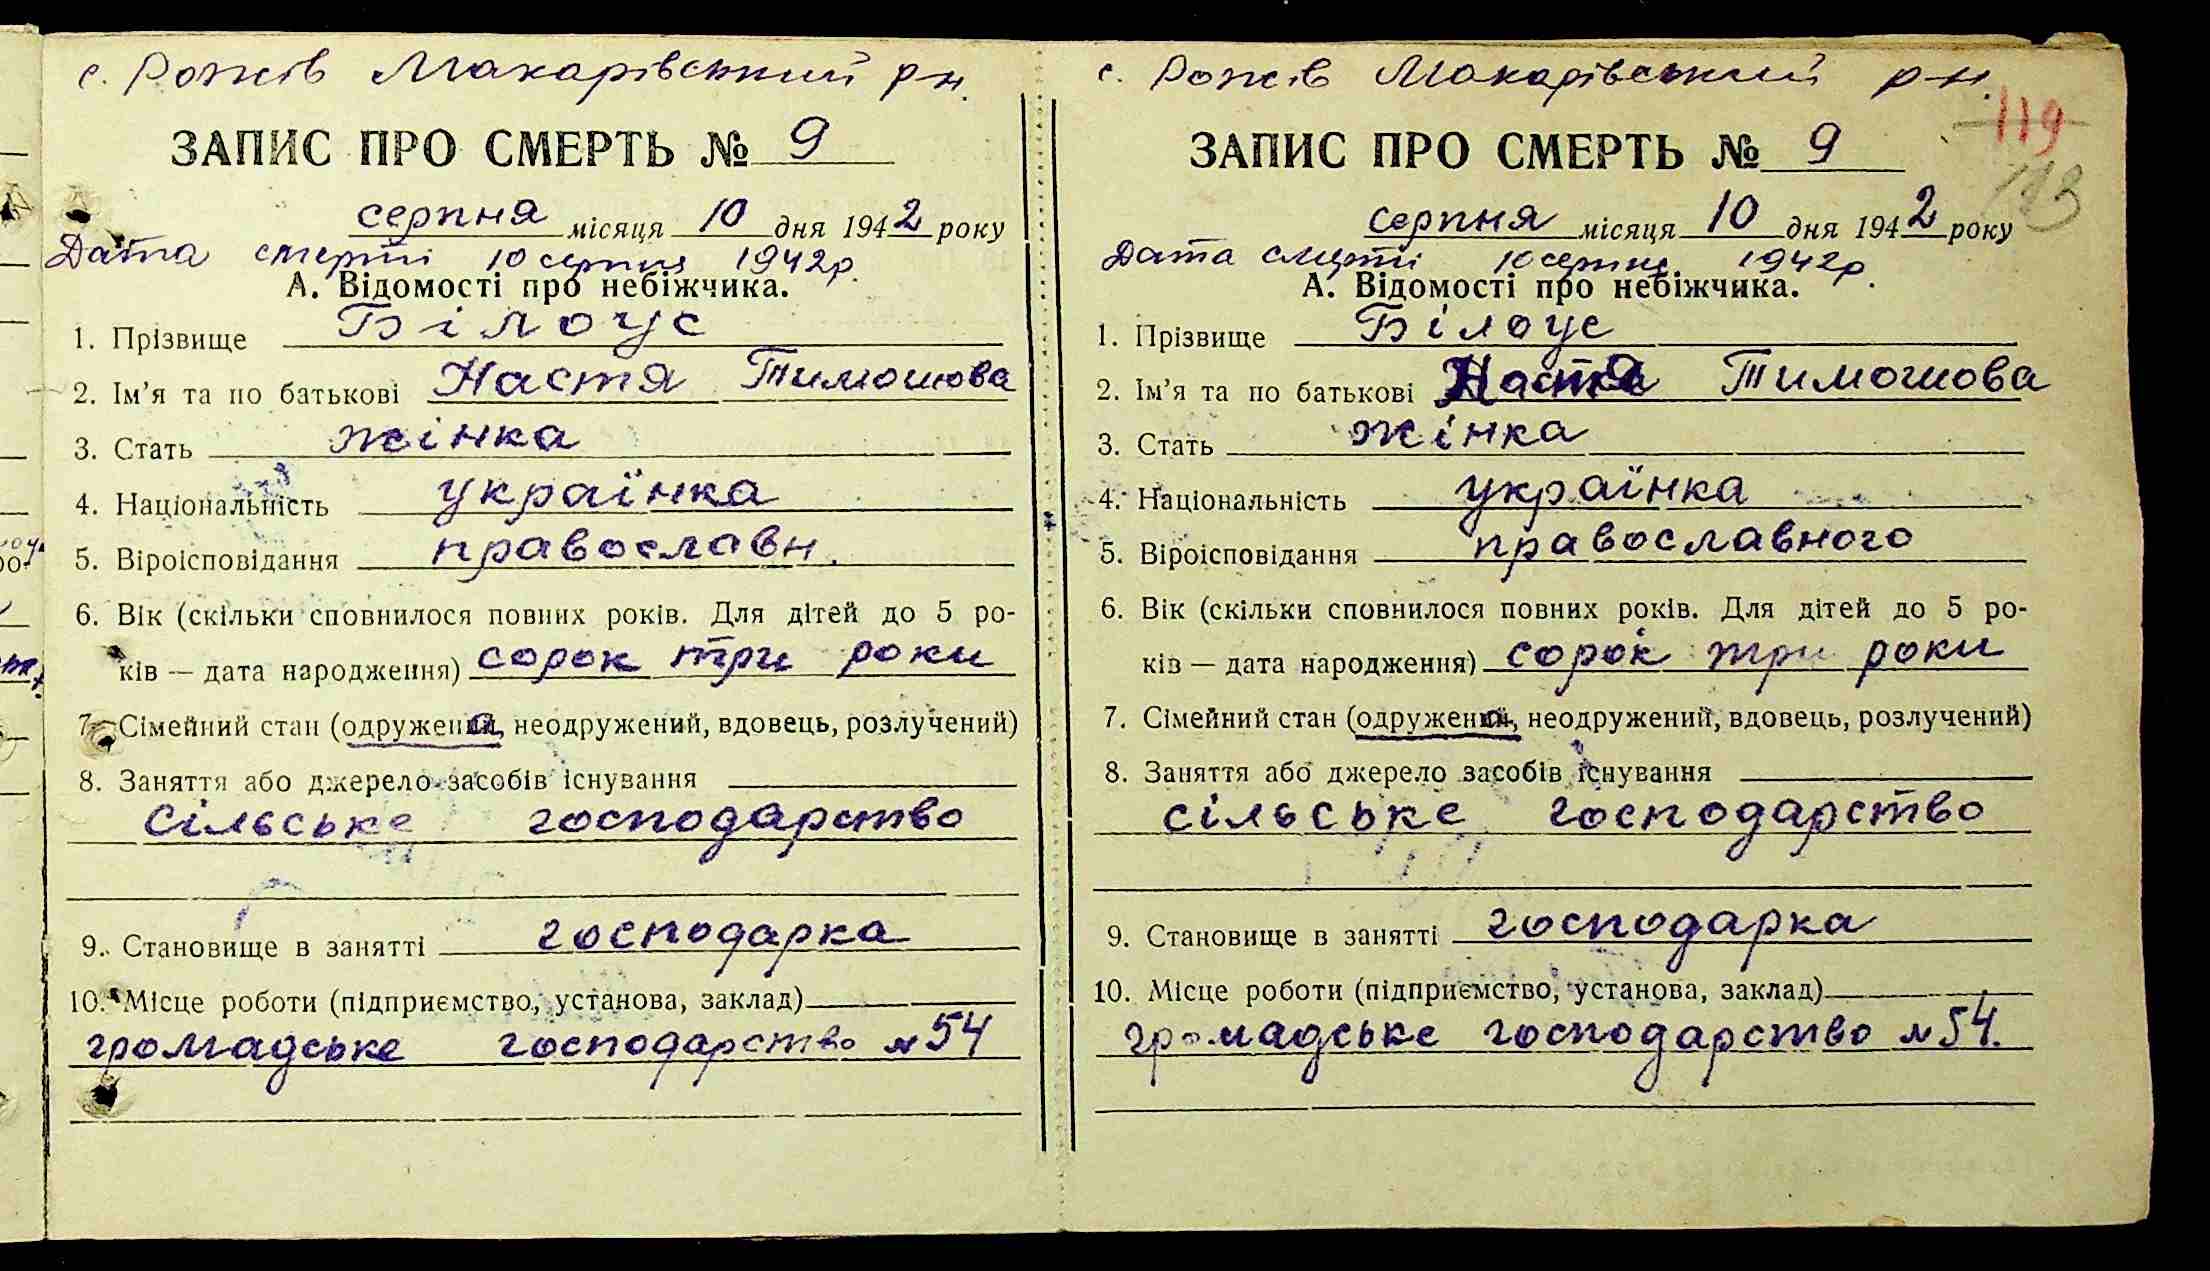 с. Рожів Макарівський р-н.
ЗАПИС ПРО СМЕРТЬ № 9
серпня місяця 10 дня 1942 року
Дата смерті 10 серпня 1942 р.
А. Відомості про небіжчика.
1. Прізвище Білоус
2. Ім'я та по батькові Настя Тимошова
3. Стать жінка
4. Національність українка
5. Віроісповідання православн.
6. Вік (скільки сповнилося повних років. Для дітей до 5 ро-
ків — дата народження) сорок три роки
7. Сімейний стан (одружена, неодружений, вдовець, розлучений)
8. Заняття або джерело засобів існування
сільське господарство
9. Становище в занятті господарка
10. Місце роботи (підприємство, установа, заклад)
громадське господарство № 54
с. Рожів Макарівський р-н.
119
113
ЗАПИС ПРО СМЕРТЬ № 9
серпня місяця 10 дня 1942 року
Дата смерті 10 серпня 1942 р.
А. Відомості про небіжчика.
1. Прізвище Білоус
2. Ім'я та по батькові Настя Тимошова
3. Стать жінка
4. Національність українка
5. Віроісповідання православного
6. Вік (скільки сповнилося повних років. Для дітей до 5 ро-
ків — дата народження) сорок три роки
7. Сімейний стан (одружена, неодружений, вдовець, розлучений)
8. Заняття або джерело засобів існування
сільське господарство
9. Становище в занятті господарка
10. Місце роботи (підприємство, установа, заклад)
громадське господарство № 54.